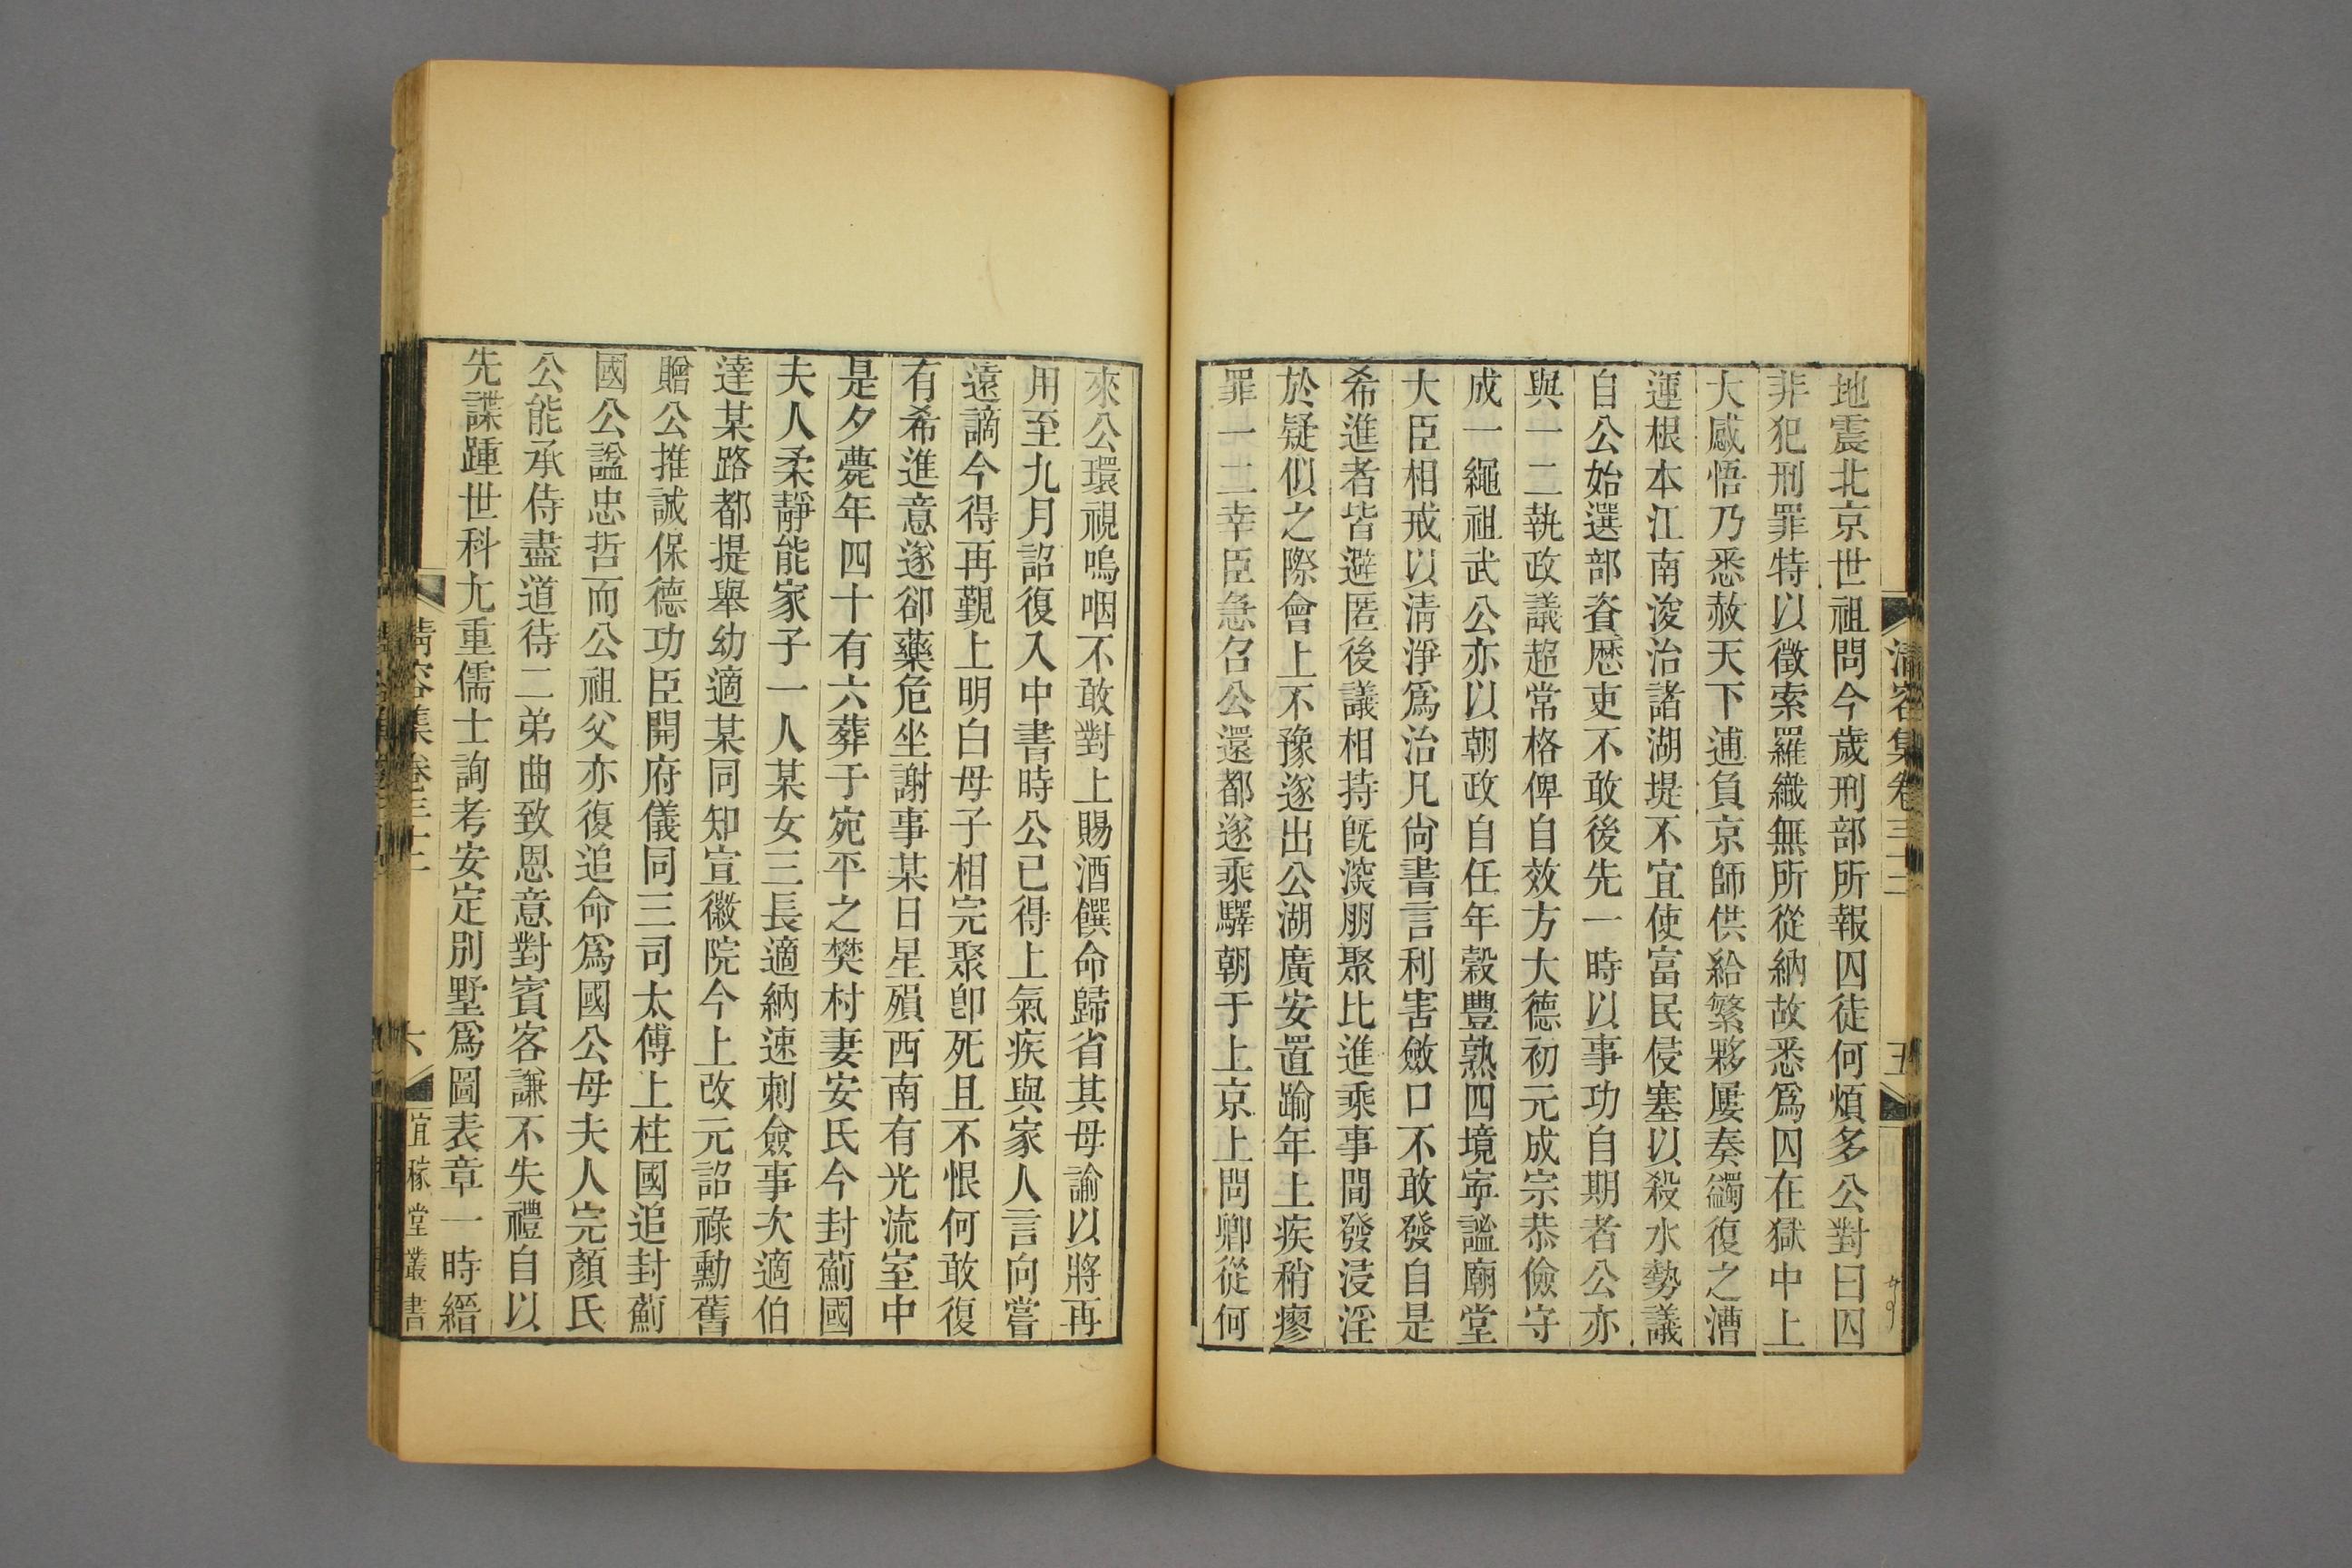 清容集卷三十二
五
地震北京世祖問今歲刑部所報囚徒何煩多公對曰囚
非犯刑罪特以徵索羅織無所從納故悉爲囚在獄中上
大感悟乃悉赦天下逋負京師供給繁夥屢奏蠲復之漕
運根本江南浚治諸湖堤不宜使富民侵塞以殺水勢議
自公始選部資歷吏不敢後先一時以事功自期者公亦
與一二執政議超常格俾自效方大德初元成宗恭儉守
成一繩祖武公亦以朝政自任年穀豐熟四境寧謐廟堂
大臣相戒以淸淨爲治凡尙書言利害斂口不敢發自是
希進者皆避匿後議相持旣深朋聚比進乘事間發浸淫
於疑似之際會上不豫遂出公湖廣安置踰年上疾稍瘳
罪一二幸臣急召公還都遂乘驛朝于上京上問卿從何
來公環視嗚咽不敢對上賜酒饌命歸省其母諭以將再
用至九月詔復入中書時公已得上氣疾與家人言向嘗
遠謫今得再觀上明白母子相完聚卽死且不恨何敢復
有希進意遂卻藥危坐謝事某日星殞西南有光流室中
是夕薨年四十有六葬于宛平之樊村妻安氏今封薊國
夫人柔靜能家子一人某女三長適納速剌僉事次適伯
達某路都提舉幼適某同知宣徽院今上改元詔祿勳舊
贈公推誠保德功臣開府儀同三司太傅上柱國追封薊
國公諡忠哲而公祖父亦復追命爲國公母夫人完顏氏
公能承侍盡道待二弟曲致恩意對賓客謙不失禮自以
先諜踵世科尤重儒士詢考安定別墅爲圖表章一時縉
淸容集卷三十二
六
宜稼堂叢書